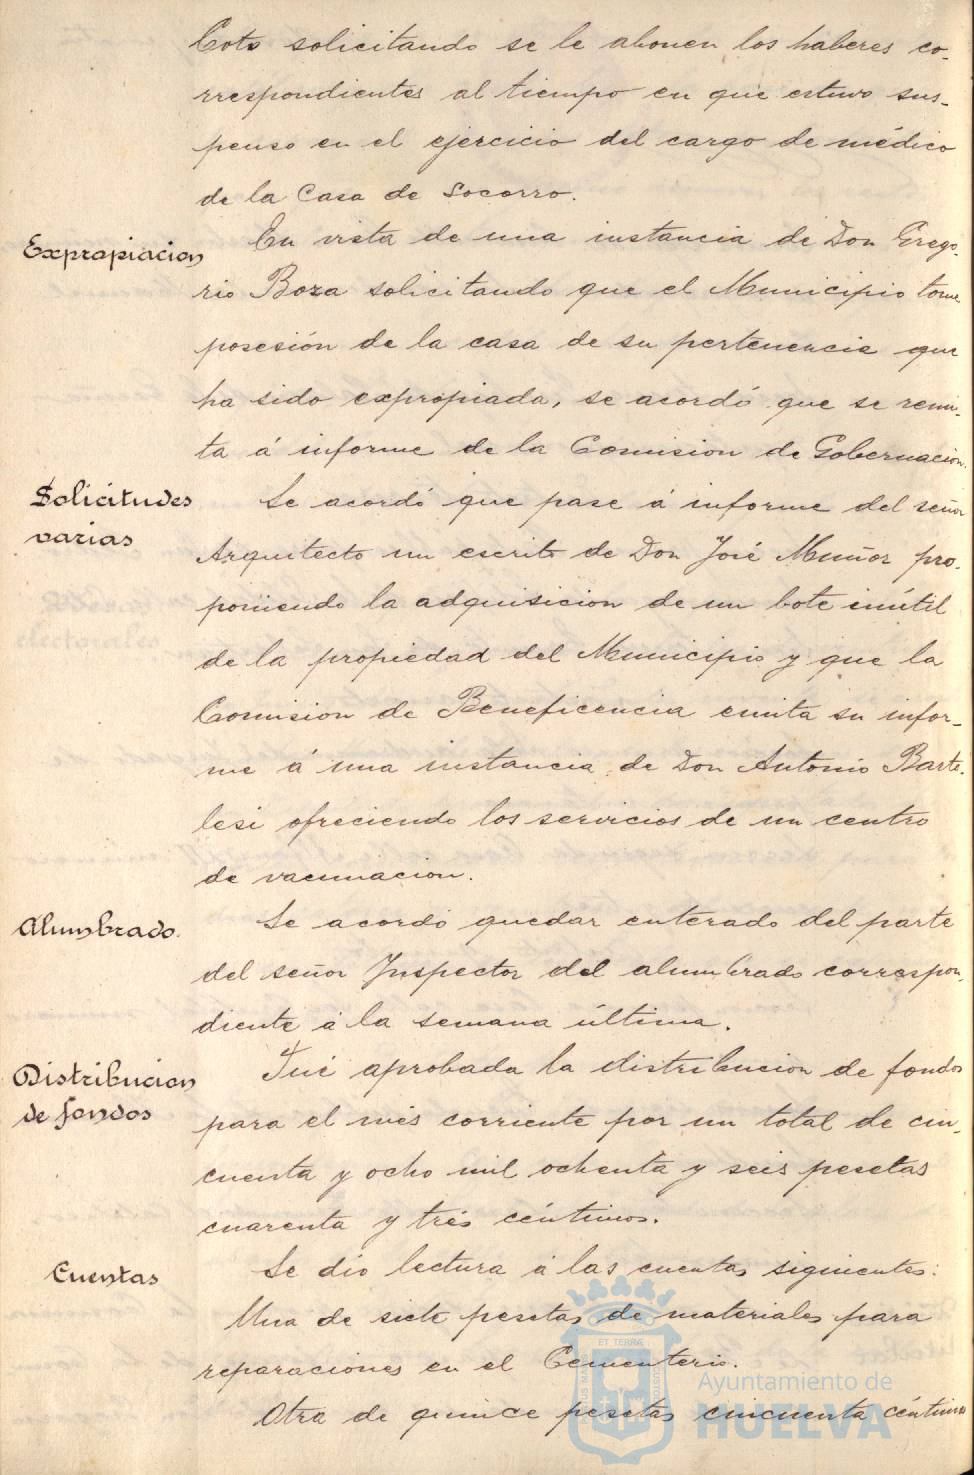 Coto solicitando se le abonen los haberes co-
rrespondientes al tiempo en que estuvo sus-
penso en el ejercicio del cargo de médico
de la Casa de Socorro.
Expropiacion
En vista de una instancia de Don Grego-
rio Boza solicitando que el Municipio tome
posesión de la casa de su pertenencia que
ha sido expropiada, se acordó que se remi-
ta á informe de la Comision de Gobernacion.
Solicitudes
varias
Se acordó que pase á informe del señor
Arquitecto un escrito de Don José Muñoz pro-
poniendo la adquisicion de un bote inútil
de la propiedad del Municipio y que la
Comision de Beneficencia emita su infor-
me á una instancia de Don Antonio Barte-
lesi ofreciendo los servicios de un centro
de vacunacion.
Alumbrado.
Se acordó quedar enterado del parte
del señor Inspector del alumbrado correspon-
diente á la semana última.
Distribucion
de fondos
Fué aprobada la distribucion de fondos
para el més corriente por un total de cin-
cuenta y ocho mil ochenta y seis pesetas
cuarenta y trés céntimos.
Cuentas
Se dio lectura á las cuentas siguientes:
Una de siete pesetas de materiales para
reparaciones en el Cementerio.
Otra de quince pesetas cincuenta céntimos
ET TERRÆ
Ayuntamiento de
HUELVA